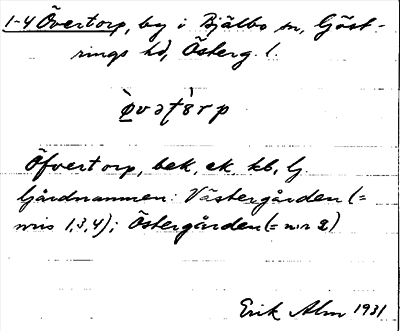 1-4 Övertorp, by i Bjälbo sn, Göst-
rings hd, Österg. l.
Öfvertorp, bek, ek, kb, lj.
Gårdnamnen: Västergården (=
nris 1,3,4); Östergården (= n:r 2)
Erik Alm 1931